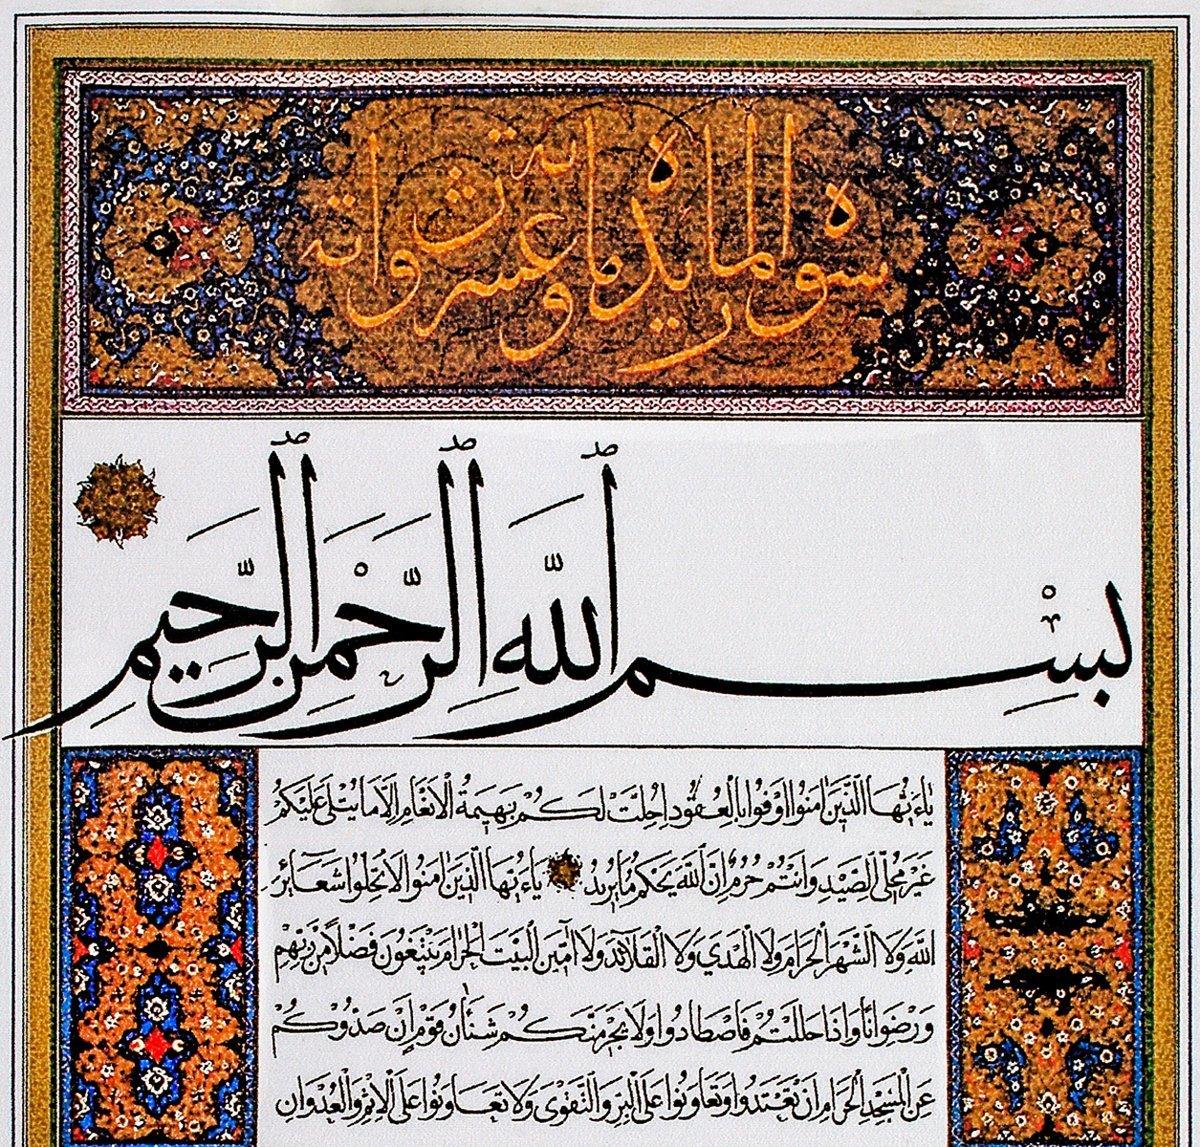 سورة المایدة مایة وعشرو اية
بِسْمِ ٱللَّهِ ٱلرَّحْمٰنِ ٱلرَّحِيمِ
يٰٓاءَيُّهَا الَّذِينَ اٰمَنُوا اَوْفُوا بِالْعُقُودِ اُحِلَّتْ لَكُمْ بَهِيمَةُ الْاَنْعَامِ اِلَّا مَا يُتْلٰى عَلَيْكُمْ
غَيْرَ مُحِلِّى الصَّيْدِ وَاَنْتُمْ حُرُمٌ اِنَّ اللّٰهَ يَحْكُمُ مَا يُرِيدُ يٰٓاءَيُّهَا الَّذِينَ اٰمَنُوا لَا تُحِلُّوا شَعَآئِرَ
اللّٰهِ وَلَا الشَّهْرَ الْحَرَامَ وَلَا الْهَدْيَ وَلَا الْقَلَآئِدَ وَلَآ اٰمِّينَ الْبَيْتَ الْحَرَامَ يَبْتَغُونَ فَضْلًا مِنْ رَبِّهِمْ
وَرِضْوَانًا وَاِذَا حَلَلْتُمْ فَاصْطَادُوا وَلَا يَجْرِمَنَّكُمْ شَنَاٰنُ قَوْمٍ اَنْ صَدُّوكُمْ
عَنِ الْمَسْجِدِ الْحَرَامِ اَنْ تَعْتَدُوا وَتَعَاوَنُوا عَلَى الْبِرِّ وَالتَّقْوٰى وَلَا تَعَاوَنُوا عَلَى الْاِثْمِ وَالْعُدْوَانِ